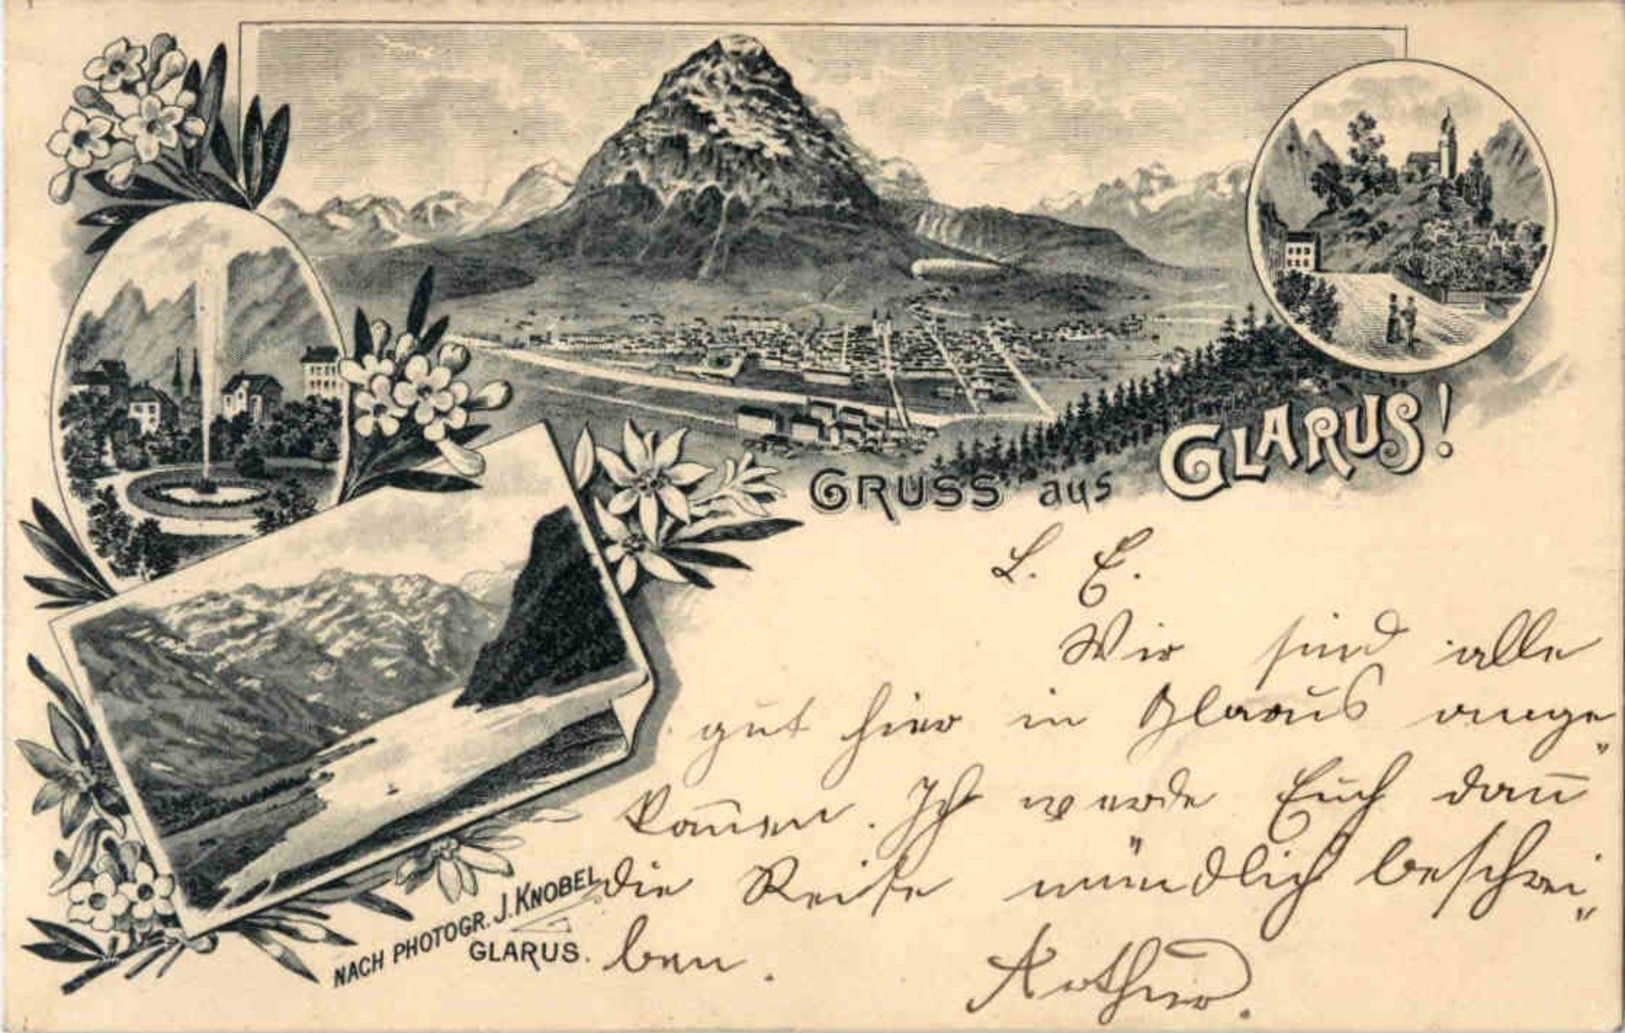 GRUSS aus GLARUS!
L. E.
Wir sind alle
gut hier in Glarus ange„
kom̄en. Ich werde Euch dan̄
die Reise mündlich beschrei„
ben.
Arthur.
NACH PHOTOGR. J. KNOBEL
GLARUS.